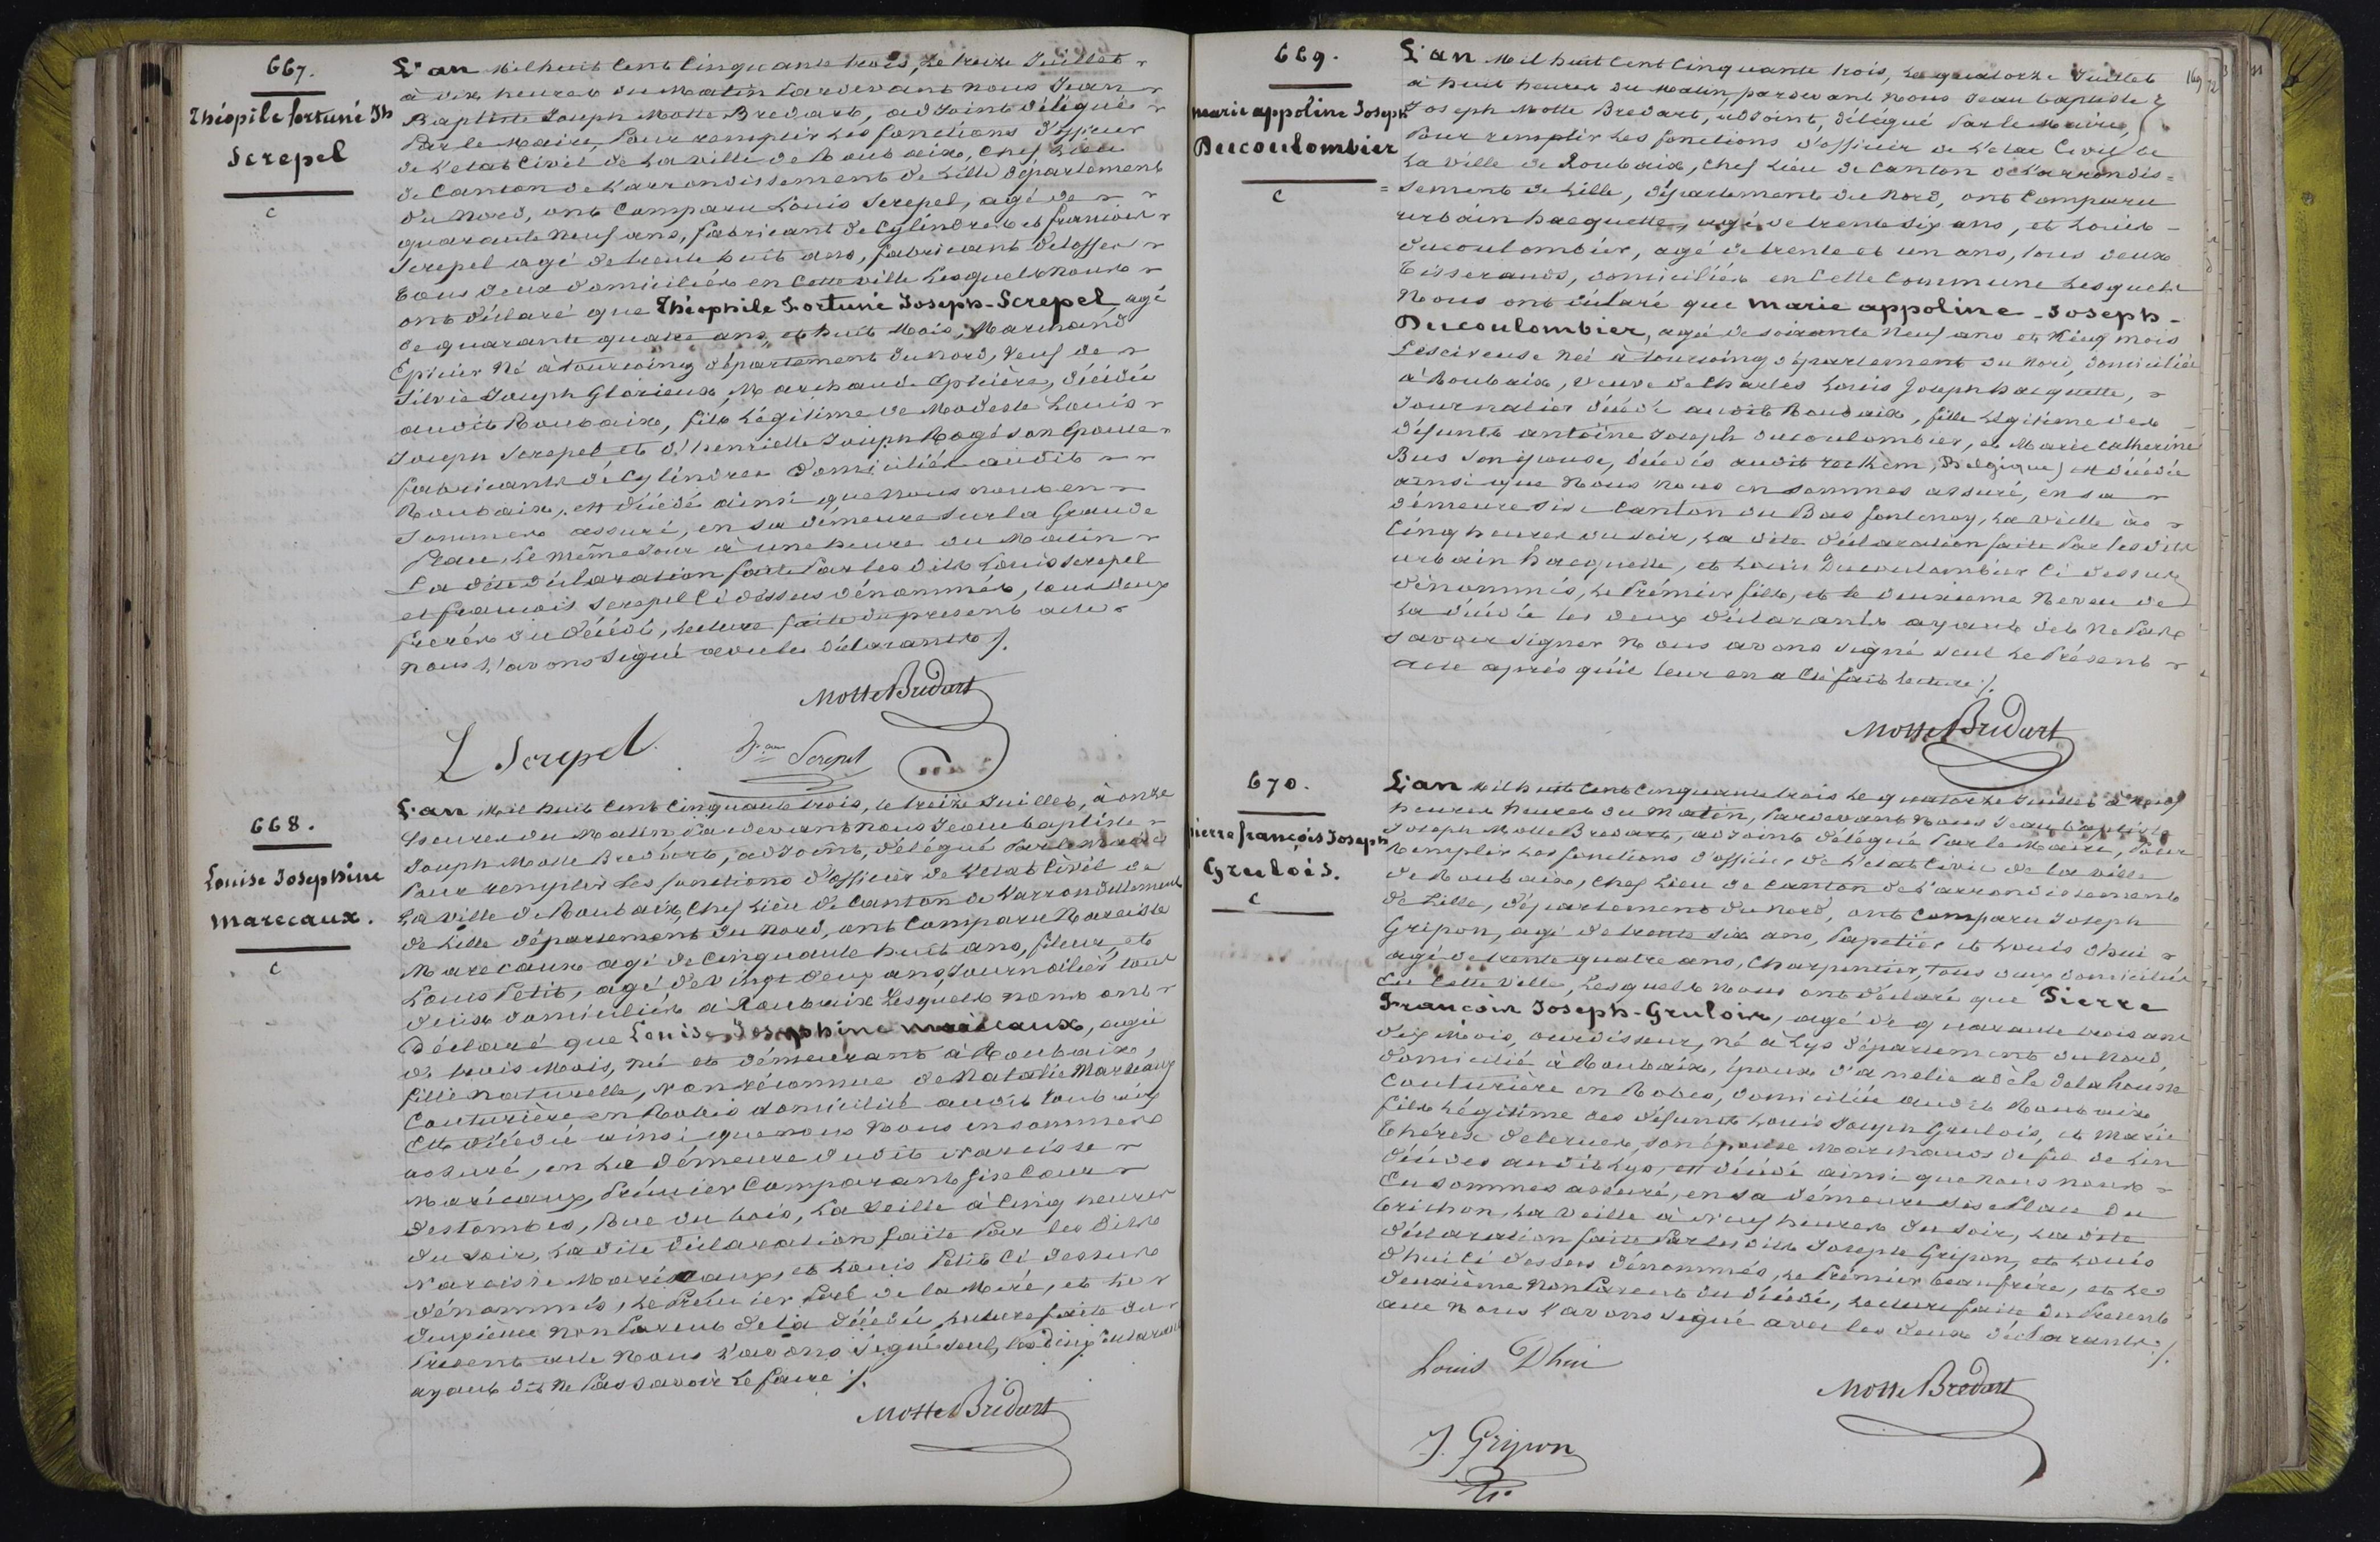 667.
Théopile fortuné Jh
Screpel
c
L'an Mil huit Cent Cinquante trois, le treize Juillet
à dix heures du Matin Pardevant nous Jean
Baptiste Joseph Motte Bredart, adjoint délégué
Par le Maire, Pour remplir les fonctions d'officier
de l'etat Civil de la ville de Roubaix, Chef Lieu
de Canton de l'arrondissement de Lille département
du Nord, ont Comparu Louis Screpel, agé de
quarante neuf ans, fabricant de Cylindres et françois
Screpel agé de trente huit ans, fabricant d'etoffes
tous deux domiciliés en Cette ville Lesquels nous
ont déclaré que Théophile Fortuné Joseph-Screpel, agé
de quarante quatre ans, et huit Mois, Marchand
Epicier Né à Tourcoing département du Nord, veuf de
Silvie Joseph Glorieux, Marchande Epicière, décédée
audit Roubaix, fils légitime de Modeste Louis
Joseph Screpel et d'henriette Joseph Rogé son Epouse
fabricants de Cylindres domiciliés audit
Roubaix, est décédé ainsi que nous nous en
Sommes assuré, en sa démeure sur la Grande
Place, le même Jour à une heure du Matin
La dite déclaration faite Par les dits Louis Screpel
et françois Screpel Ci dessus dénommés, tous deux
frerés du décédé, lecture faite du present acte
nous l'avons signé avec les déclarants ./.
Motte Bredart
L Screpel
f.ois Screpel
668.
Louise Josephine
Marecaux.
c
L'an Mil huit Cent Cinquante trois, le treize Juillet, à onze
heures du Matin, Pardevant nous Jean baptiste
Joseph Motte Bredart, adjoint, délégué Par le Maire
Pour remplir Les fonctions d'officier de l'etat Civil de
la ville de Roubaix, Chef Lieu de Canton de l'arrondissement
de Lille département du Nord, ont Comparu Narcisse
Marecaux agé de Cinquante huit ans, fileur, et
Louis Petit, agé de vingt deux ans, Journalier tous
deux domiciliés à Roubaix Lesquels nous ont
Déclaré que Louise Josephine marecaux, agée
de trois Mois, née et démeurant à Roubaix,
fille naturelle, non réconnue de Natalie Marecaux
Couturière en Robes domiciliée audit Roubaix
Est décédée ainsi que nous Nous en sommes
assuré, en la démeure dudit Narcisse
Marécaux, Prémier Comparant sise Cour
destombes, Rue du bois, La Veille à Cinq heures
du soir, La dite déclaration faite Par les dits
Narcisse Marécaux, et Louis Petit Ci dessus
dénommés, Le Prémier Pere de la Mére, et le
deuxième non Parent de la décédée, lecture faite du
Présent acte Nous l'avons signé seul, les deux déclarants
ayant dit Ne Pas savoir le faire ./.
Motte Bredart
669.
marie appoline Joseph
Ducoulombier
c
L'an Mil huit Cent Cinquante trois, Le quatorze Juillet
à huit heures du Matin, pardevant Nous Jean baptiste
Joseph Motte Bredart, adjoint, délégué Par le Maire,
Pour remplir Les fonctions d'officier de l'etat Civil de
La ville de Roubaix, Chef Lieu de Canton de l'arrondis=
=sement de Lille, département du Nord, ont Comparu
urbain hacquette, agé de trente six ans, et Louis
ducoulombier, agé de trente et un ans, tous deux
Tisserands, domiciliés en Cette Commune Lesquels
Nous ont déclaré que marie appoline-Joseph-
Ducoulombier, agée de soixante Neuf ans et Neuf mois
Lesciveuse Née à Tourcoing département du Nord, domiciliée
à Roubaix, veuve de Charles Louis Joseph hacquette,
Journalier décédé audit Roubaix, fille légitime des
défunts antoine Joseph ducoulombier, et Marie Catherine
Bus Son épouse, décédés audit reckem (Belgique) est décédée
ainsi que Nous nous en sommes assuré, en sa
démeure sise Canton du Bas fontenoy, La Vielle à
Cinq heures du soir, La dite déclaration faite Par les dits
urbain hacquette, et Louis Ducoulombier Ci dessus
dénommés, Le Prémier fils, et le deuxième Neveu de
La décédée les deux déclarants ayant dit Ne Pas
savoir signer Nous avons signé seul Le Présent
acte après qu'il leur en a été fait lecture ./.
Motte Bredart
169
670.
pierre françois Joseph
Grulois.
c
L'an Mil huit Cent Cinquante trois Le quatorze Juillet à neuf
heures heures du Matin, Pardevant Nous Jean baptiste
Joseph Motte Bredart, adjoint délégué Par le Maire, Pour
Remplir Les fonctions d'officier de L'etat Civil de la ville
de Roubaix, Chef Lieu de Canton de l'arrondissement
de Lille, département du Nord, ont Comparu Joseph
Gripon, agé de trente six ans, Papetier et Louis dhui
agé de trente quatre ans, Charpentier, tous deux domiciliés
En Cette Ville, Lesquels Nous ont déclaré que Pierre
François Joseph-Grulois, agé de quarante trois ans
dix Mois, ourdisseur, né à Lys département du Nord,
domicilié à Roubaix, Epoux d'amelie adèle delahousse
Couturière en Robes, domiciliée audit Roubaix
fils Légitime des défunts Louis Joseph Grulois, et Marie
Thérèse delerue, son épouse Marchands de fil de Lin
décédés audit Lys, est décédé ainsi que nous nous
En sommes assuré, en sa démeure sise Place du
trichon, La Veille à Neuf heures du soir, La dite
déclaration faite Par les dits Joseph Gripon, et Louis
dhui Ci dessus dénommés, Le Prémier beau frère, et Le
deuxième Non Parent du décédé, Lecture faite du Présent
acte Nous l'avons signé avec les deux déclarants ./.
Louis Dhui
Motte Bredart
J. Gripon